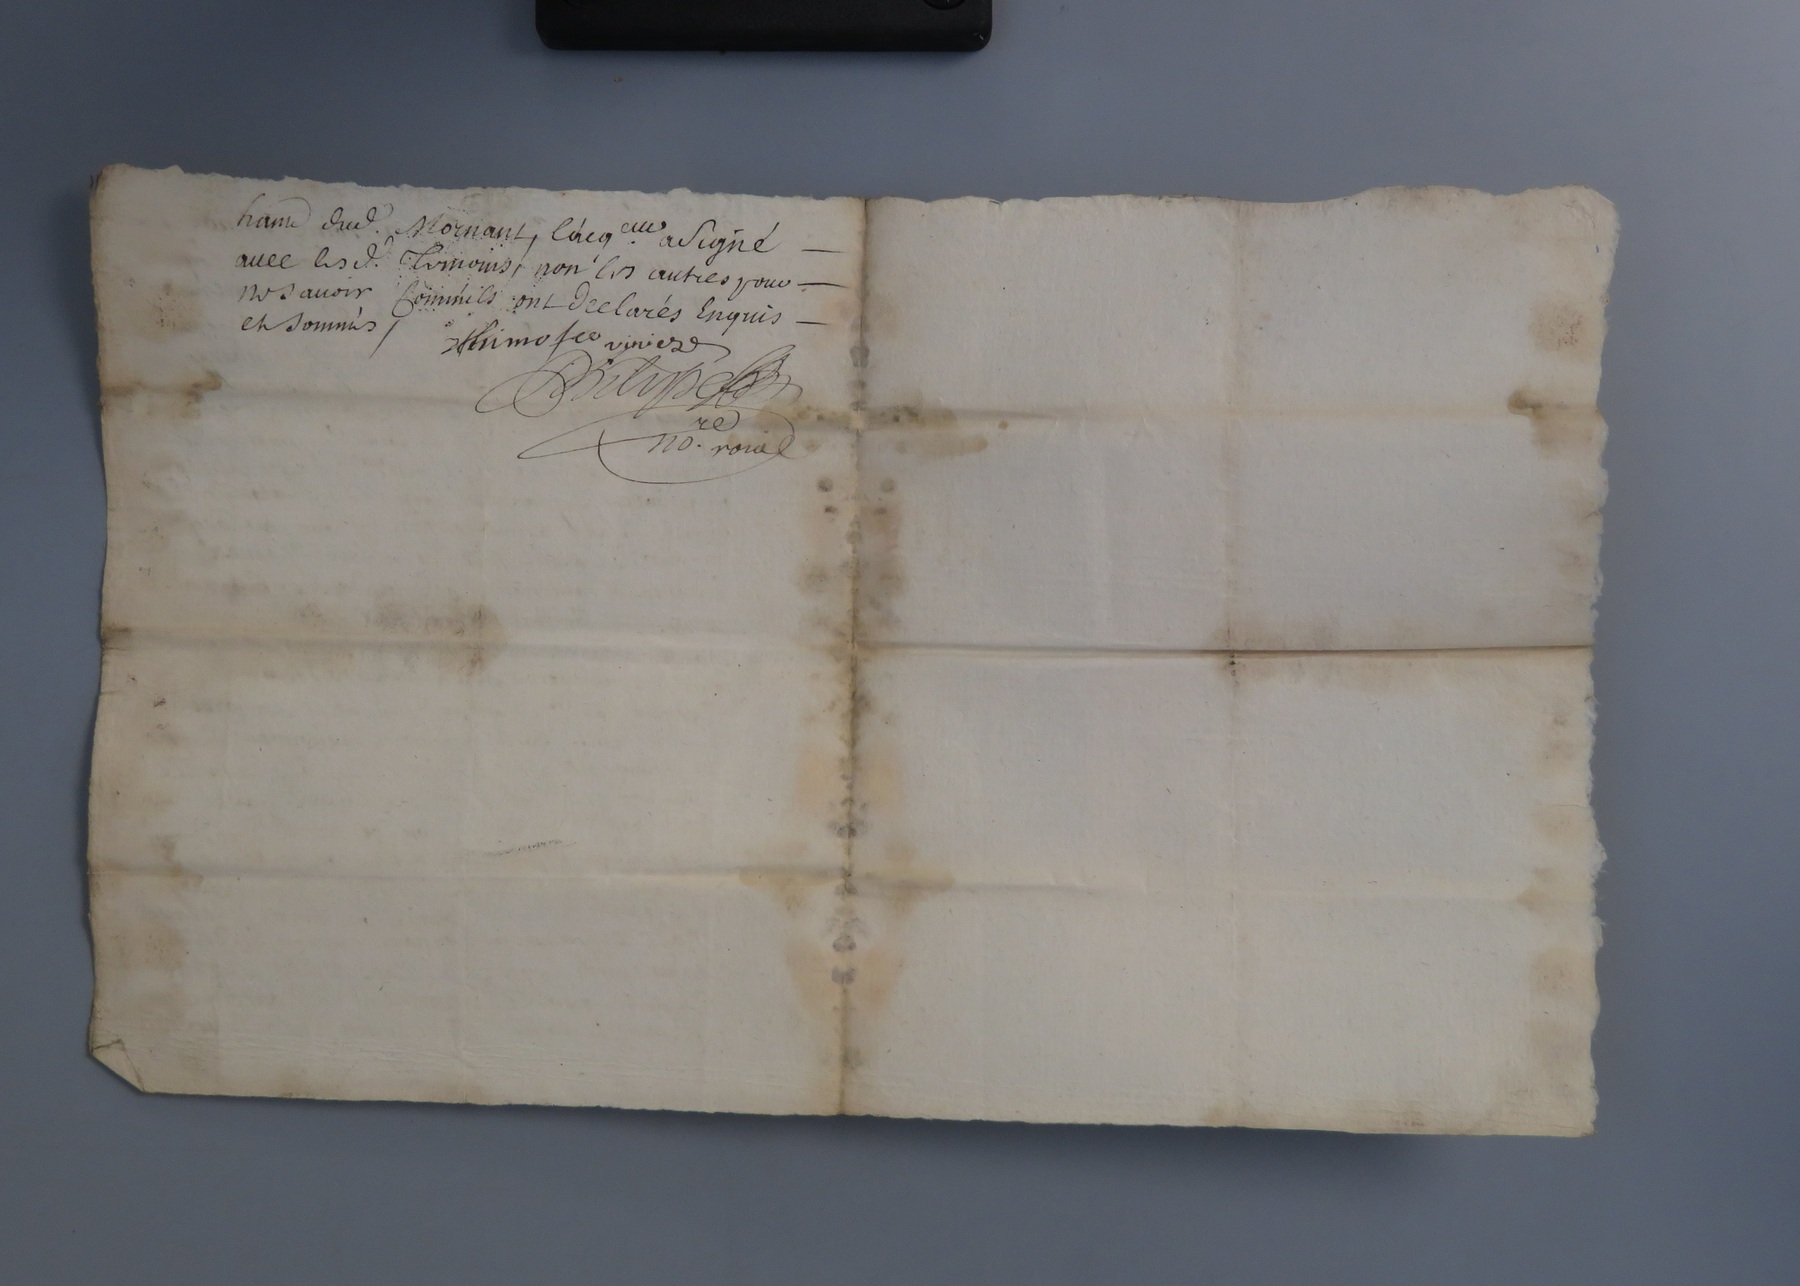 dud. Mornant, l'acq.eur a signé —
avec lesd. Temoins, non les autres pour —
ne savoir comm'ils ont declarés Enquis —
et sommés /
viviere
Philipe
no.re roial